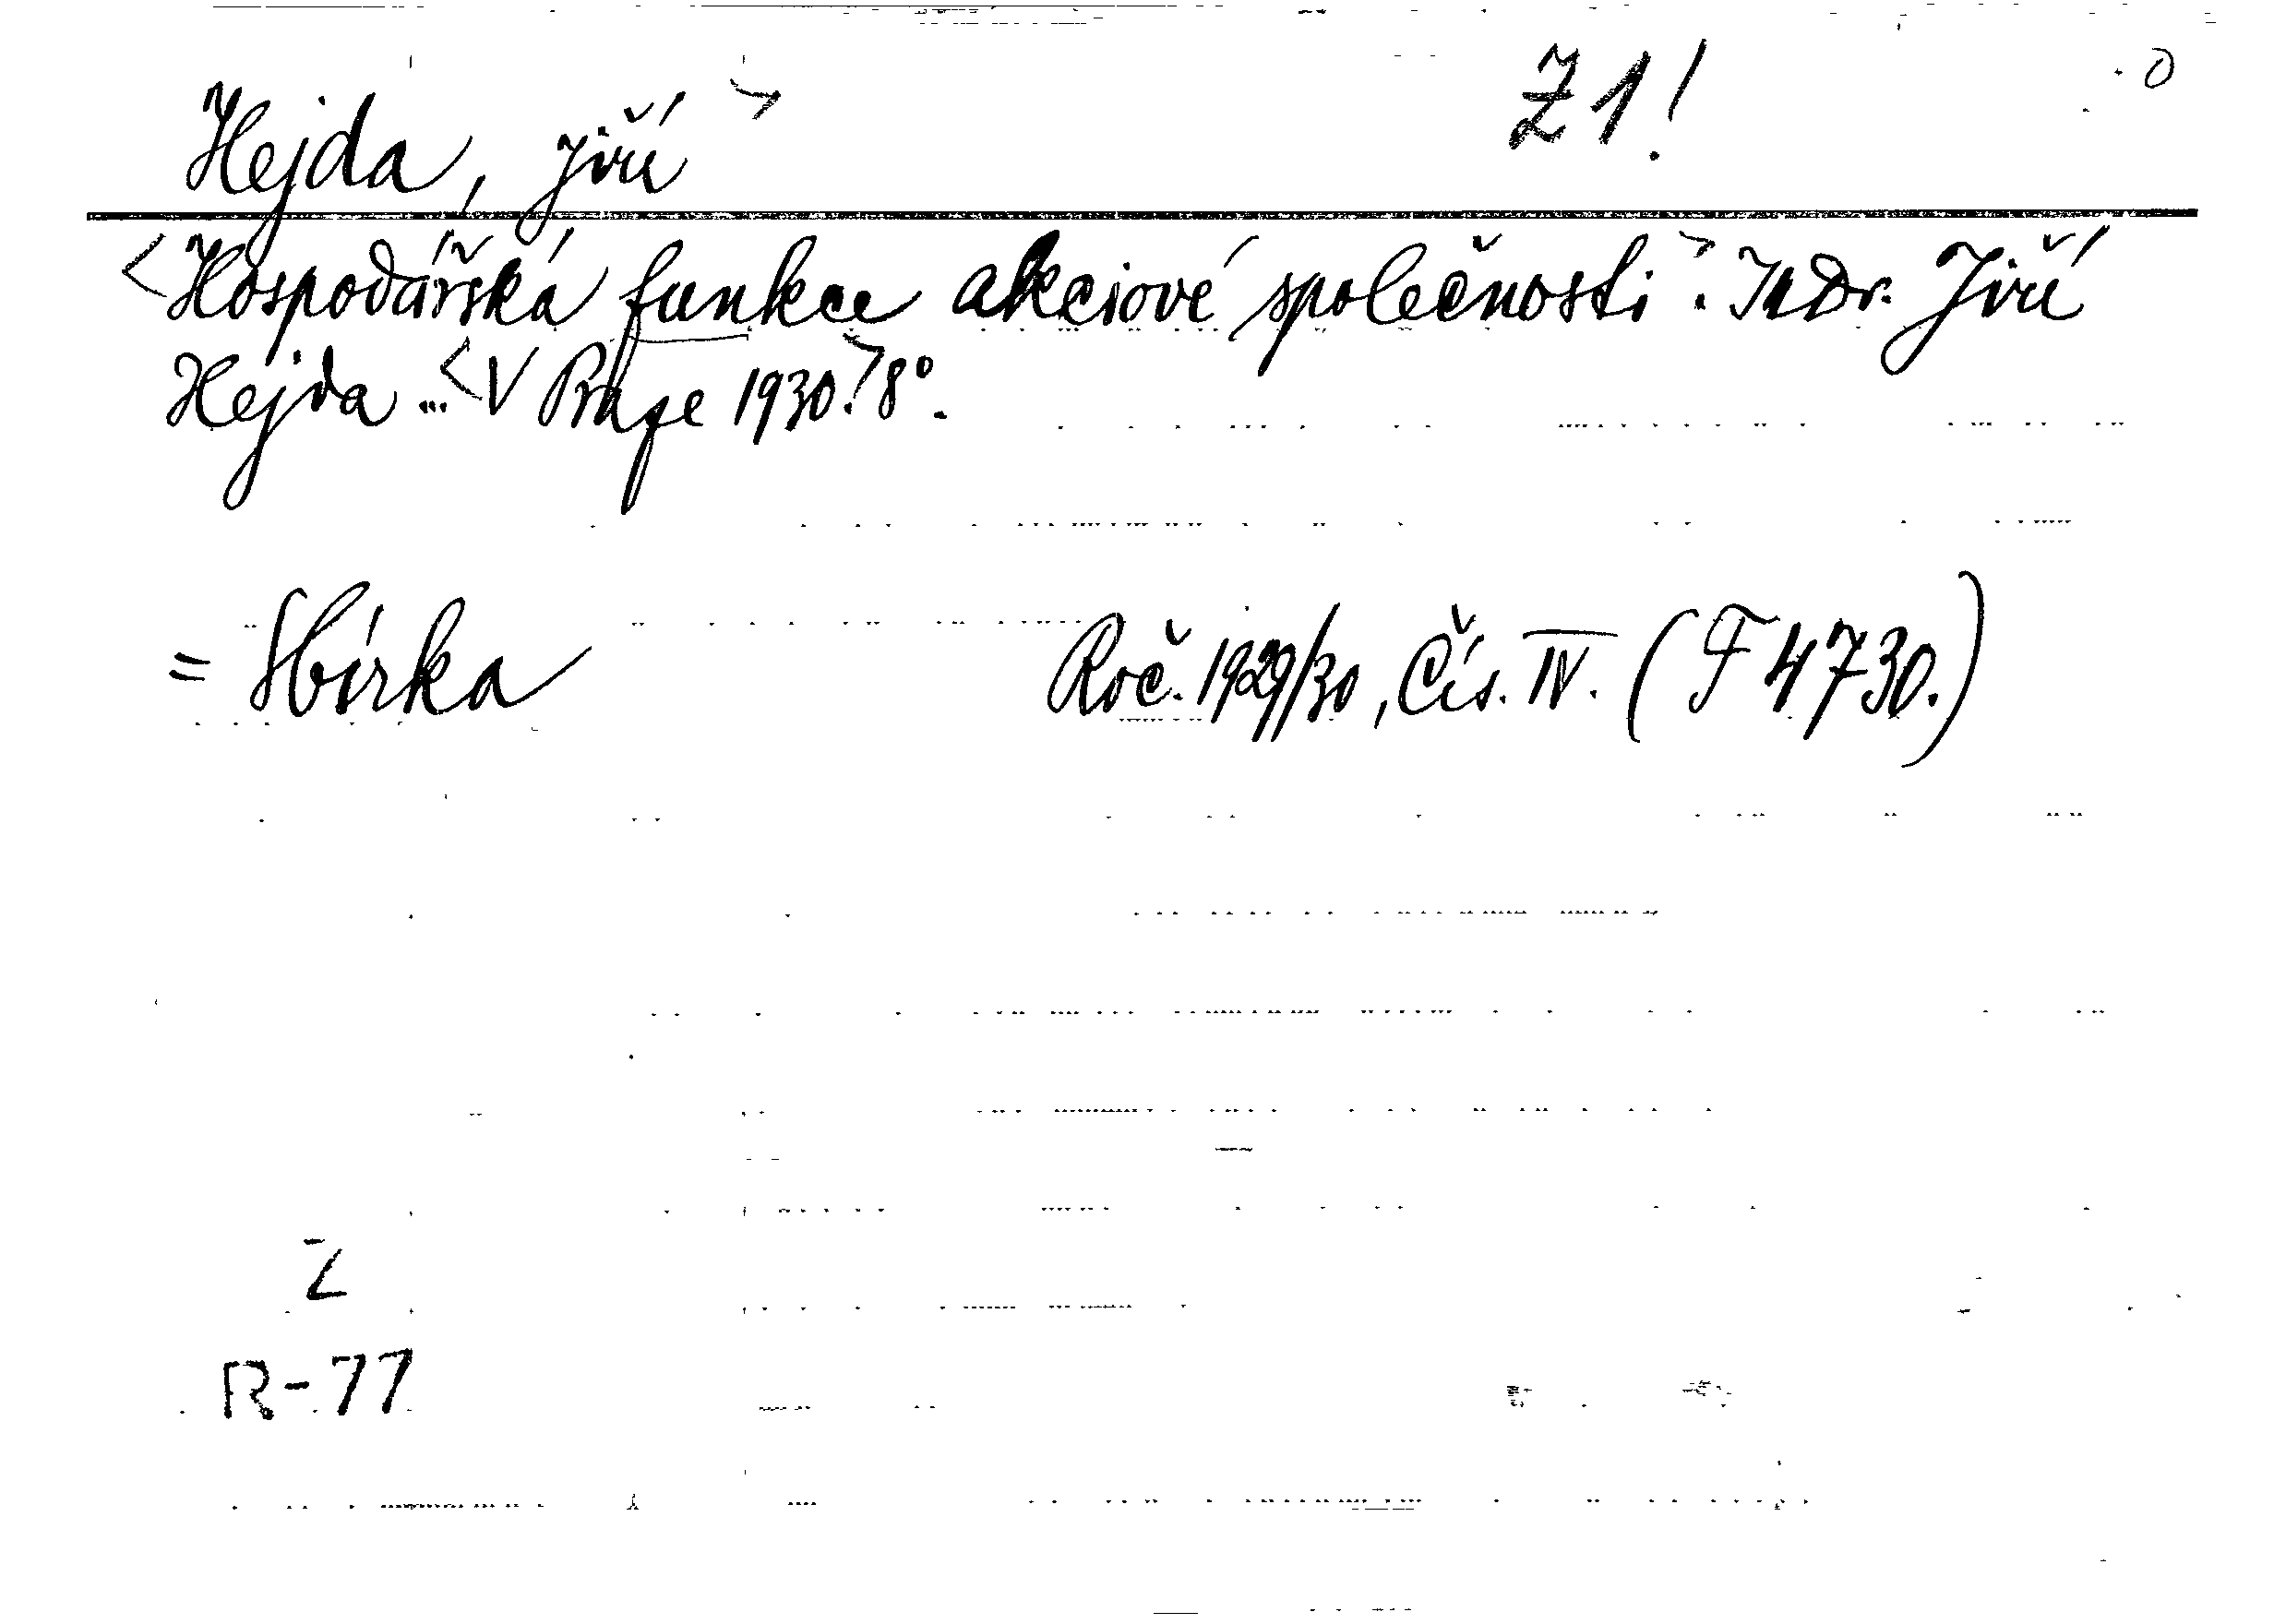 Hejda, Jiří > Z1! 0
<Hospodářská funkce akciové společnosti>. JUDr. Jiří
Hejda ... <V Praze 1930.> 8°.
= Sbírka Roč. 1929/30, Čís. IV. (F 4730.)
Z
R-77